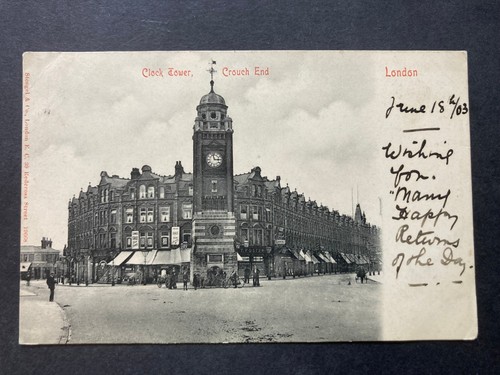 Clock Tower, Crouch End
London
June 18th/03
Wishing
you.
"Many
Happy
Returns
of the Day.
Stengel & Co., London E. C. 39 Redcross Street